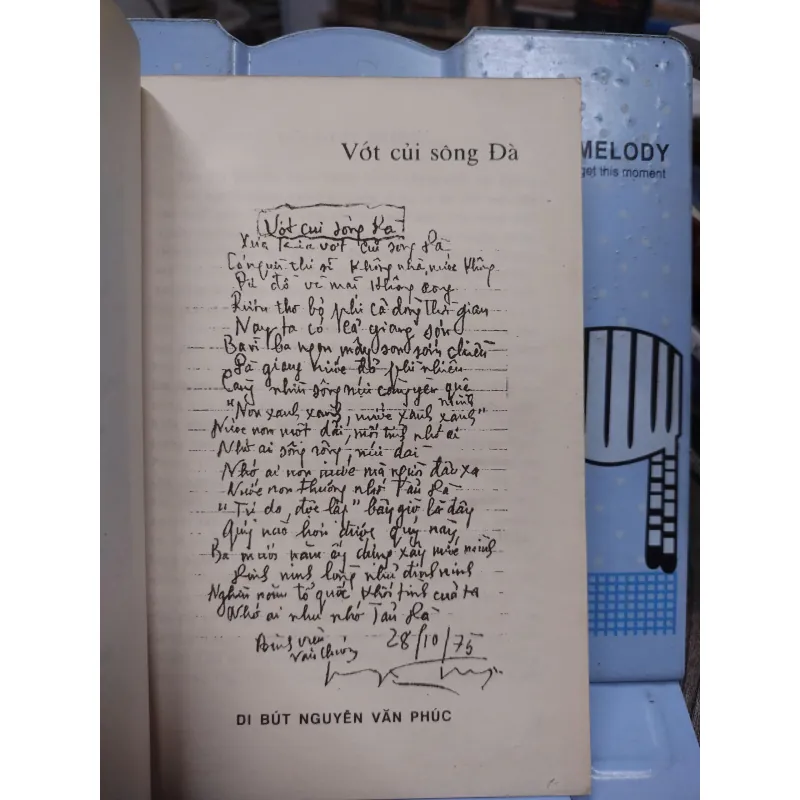 Vớt củi sông Đà
MELODY
get this moment
Vớt củi sông Đà
Xưa kia vớt củi sông Đà
Có người thi sĩ không nhà, nước không
Đò về mãi không
Rượu thơ bỏ phí cả dòng thời gian
Nay ta có cả giang sơn
Ba vì ba ngọn mây son sớm chiều
Đà giang nước đổ phì nhiêu
Càng nhìn sông núi càng yêu quê mình
"Non xanh xanh, nước xanh xanh"
Nước non một dải, mối tình nhớ ai
Nhớ ai sông rộng, núi dài
Nhớ ai non nước mà người đâu xa
Nước non thương nhớ Tản Đà
"Tự do, độc lập" bây giờ là đây
Quý nào hơn được quý này
Ba mươi năm ấy dựng xây nước mình
Đinh ninh lòng những đinh ninh
Nghìn năm tổ quốc khối tình của ta
Nhớ ai như nhớ Tản Đà
28/10/75
DI BÚT NGUYỄN VĂN PHÚC